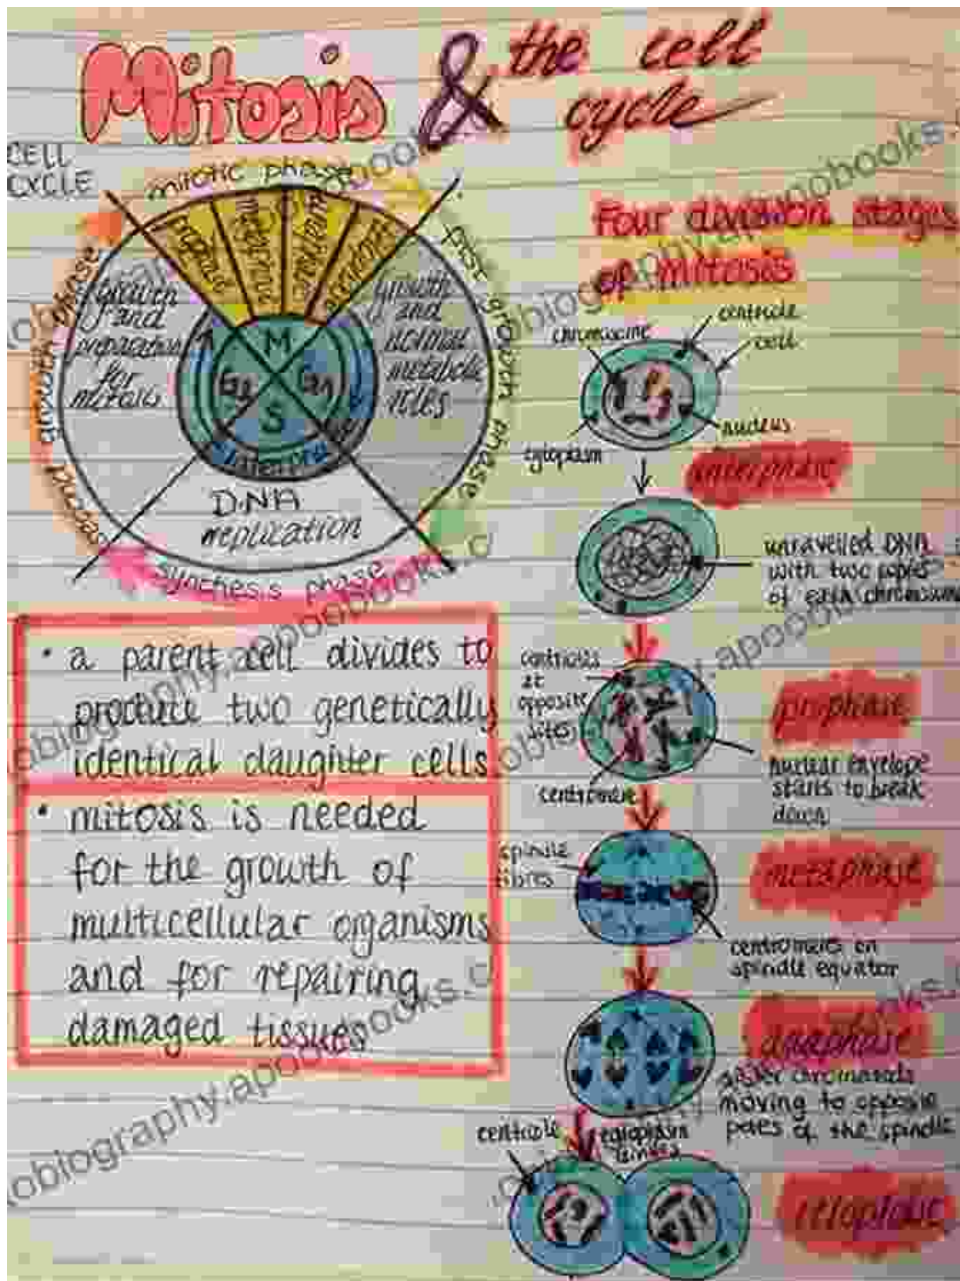 Mitosis & the cell
cycle
CELL
CYCLE
mitotic phase
prophase
metaphase
anaphase
telophase
post growth phase
second growth phase
synthesis phase
growth
and
preparation
for
mitosis
growth
and
normal
metabolic
roles
M
G2
G1
S
interphase
DNA
replication
• a parent cell divides to
produce two genetically
identical daughter cells
• mitosis is needed
for the growth of
multicellular organisms
and for repairing
damaged tissues
Four division stages
of mitosis
chromosome
centriole
cell
nucleus
cytoplasm
interphase
unravelled DNA
with two copies
of each chromosome
centrioles
at
opposite
sites
prophase
nuclear envelope
starts to break
down
centromere
spindle
fibres
metaphase
centromeres on
spindle equator
anaphase
sister chromatids
moving to opposite
poles of the spindle
centriole
cytoplasm
telophase